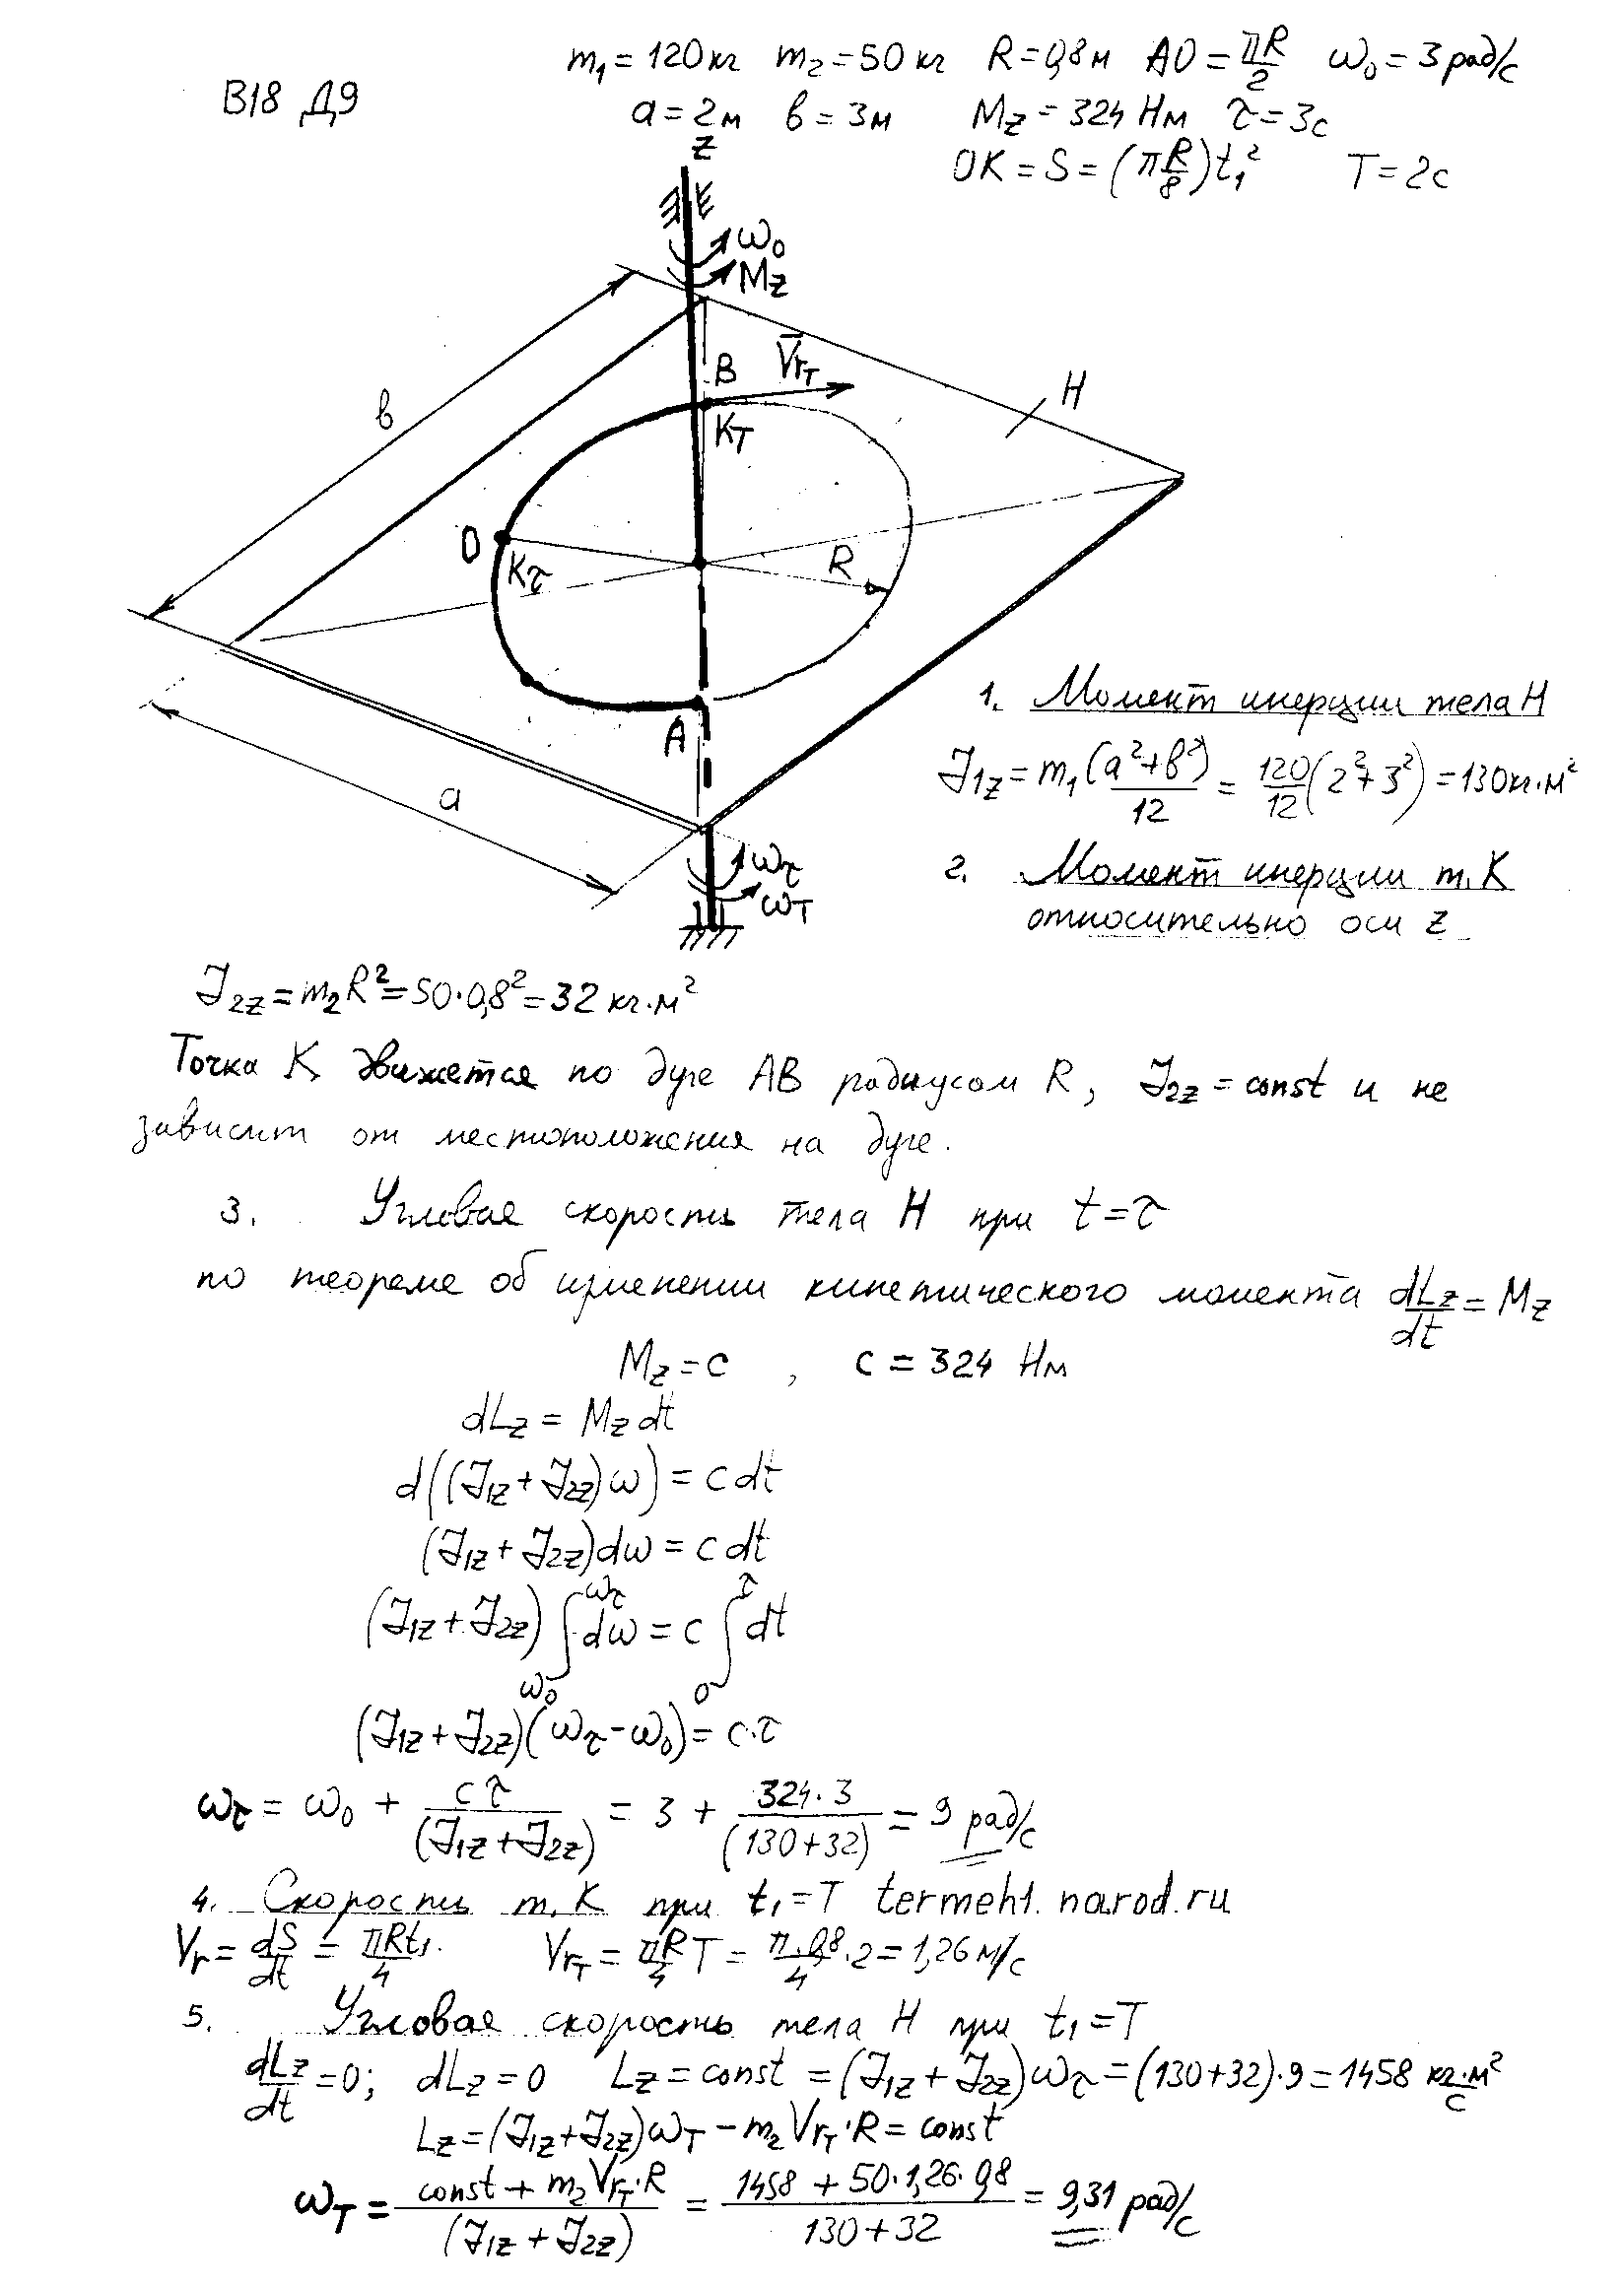 m₁ = 120 кг m₂ = 50 кг R = 0,8 м AO = πR/2 ω₀ = 3 рад/с
В18 Д9
a = 2 м в = 3 м M_z = 324 Нм τ = 3 с
OK = S = (πR/8)t₁² T = 2 с
z
ω₀
M_z
B V̄r_T H
в
K_T
O
K_τ R
A
a
ω_τ
ω_T
1. Момент инерции тела H
J₁z = m₁(a²+в²)/12 = 120/12(2²+3²) = 130 кг·м²
2. Момент инерции т. K
относительно оси z
J₂z = m₂R² = 50·0,8² = 32 кг·м²
Точка K движется по дуге AB радиусом R, J₂z = const и не
зависит от местоположения на дуге.
3. Угловая скорость тела H при t = τ
по теореме об изменении кинетического момента dLz/dt = Mz
Mz = c , c = 324 Нм
dLz = Mz dt
d((J₁z + J₂z)ω) = c dt
(J₁z + J₂z)dω = c dt
(J₁z + J₂z) ∫_{ω₀}^{ω_τ} dω = c ∫_0^τ dt
(J₁z + J₂z)(ω_τ - ω₀) = c·τ
ω_τ = ω₀ + cτ/(J₁z + J₂z) = 3 + 324·3/(130+32) = 9 рад/с
4. Скорость т. K при t₁ = T termeh1.narod.ru
Vr = dS/dt = πRt₁/4. Vr_T = πR/4 T = π·0,8/4·2 = 1,26 м/с
5. Угловая скорость тела H при t₁ = T
dLz/dt = 0; dLz = 0 Lz = const = (J₁z + J₂z)ω_τ = (130+32)·9 = 1458 кг·м²/с
Lz = (J₁z + J₂z)ω_T - m₂Vr_T·R = const
ω_T = const + m₂Vr_T·R/(J₁z + J₂z) = 1458 + 50·1,26·0,8/130+32 = 9,31 рад/с